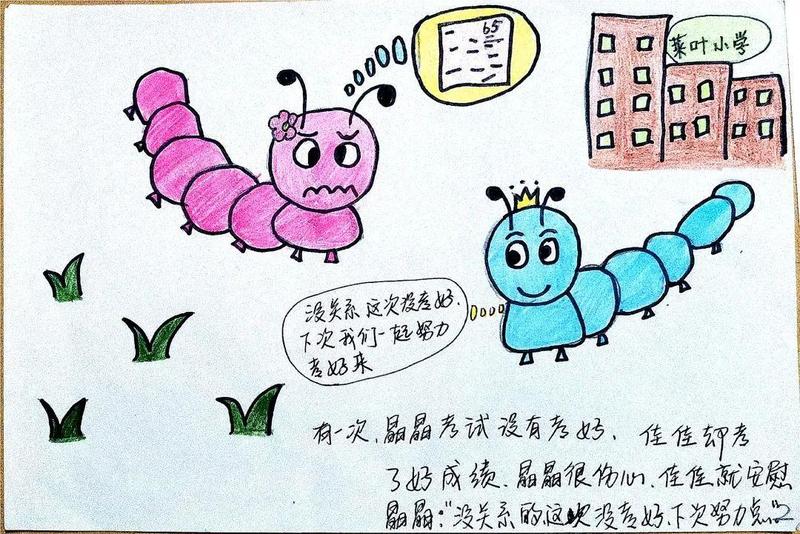 65
菜叶小学
没关系这次没考好、
下次我们一起努力
考好来
有一次、晶晶考试没有考好、佳佳却考
了好成绩、晶晶很伤心、佳佳就安慰
晶晶:"没关系的,这次没考好、下次努力点。"
2